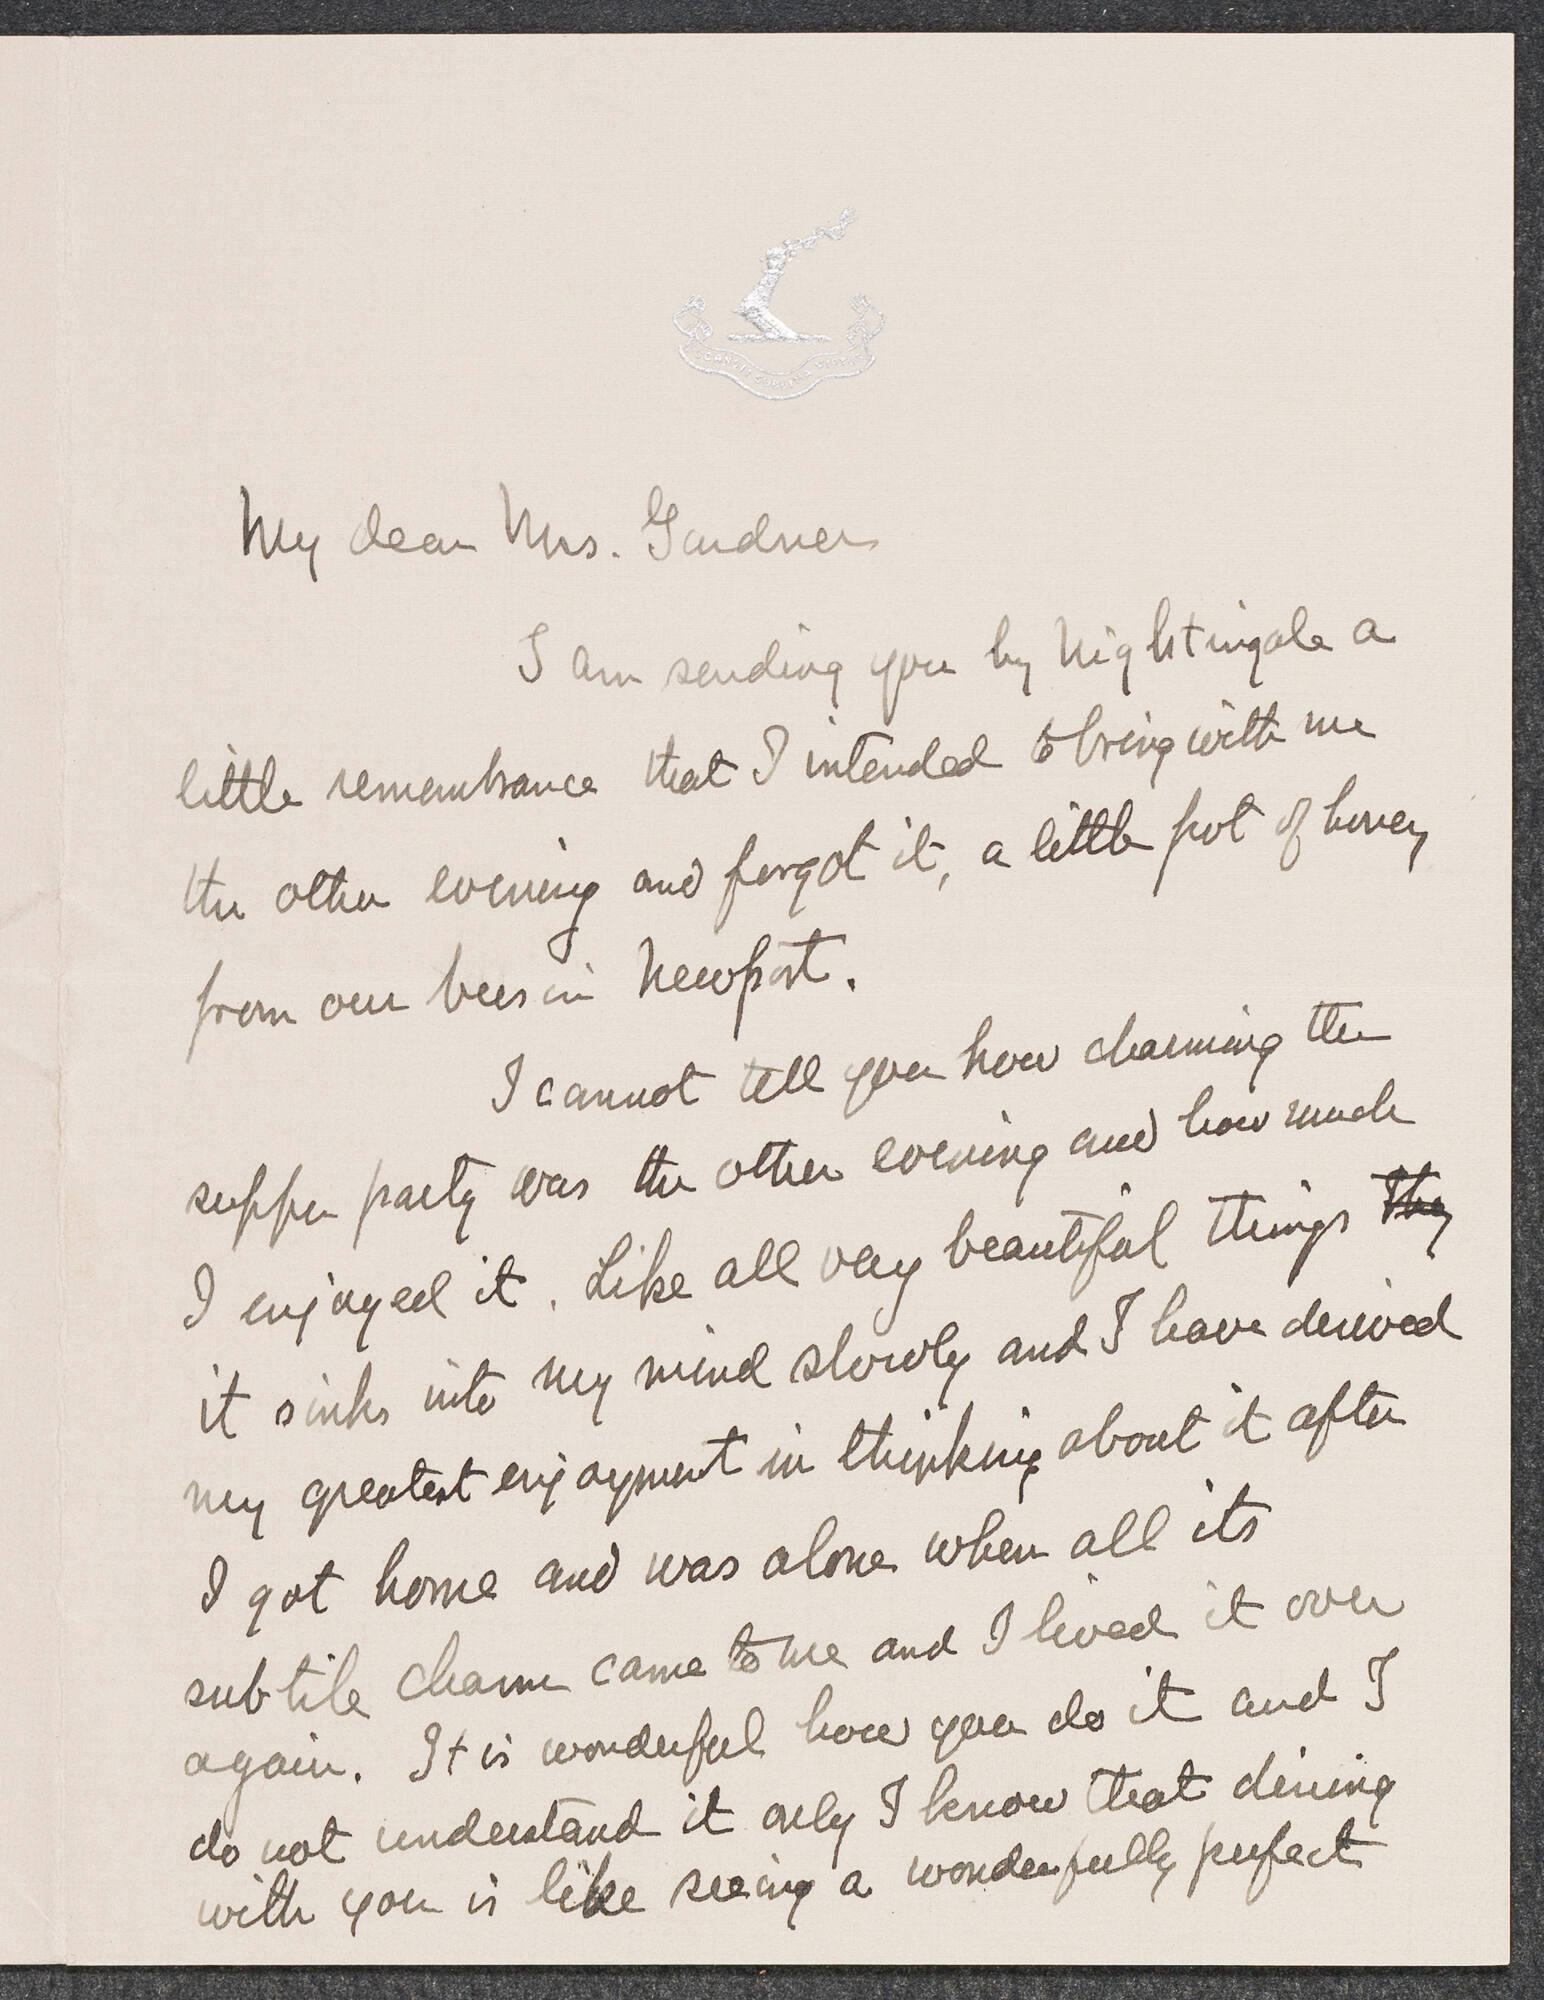 My dear Mrs. Gardner
I am sending you by Nightingale a
little remembrance that I intended to bring with me
the other evening and forgot it, a little pot of honey
from our bees in Newport.
I cannot tell you how charming the
supper party was the other evening and how much
I enjoyed it. Like all very beautiful things they
it sinks into my mind slowly and I have derived
my greatest enjoyment in thinking about it after
I got home and was alone when all its
subtile charm came to me and I lived it over
again. It is wonderful how you do it and I
do not understand it only I know that dining
with you is like seeing a wonderfully perfect